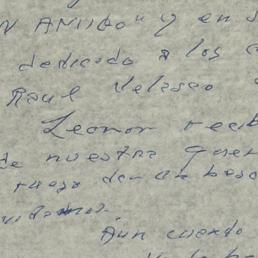 y en s
dedicado a los c
Raul Velasco
Leonor recib
de nuestra quer
ruego dar un beso
Aun cuando